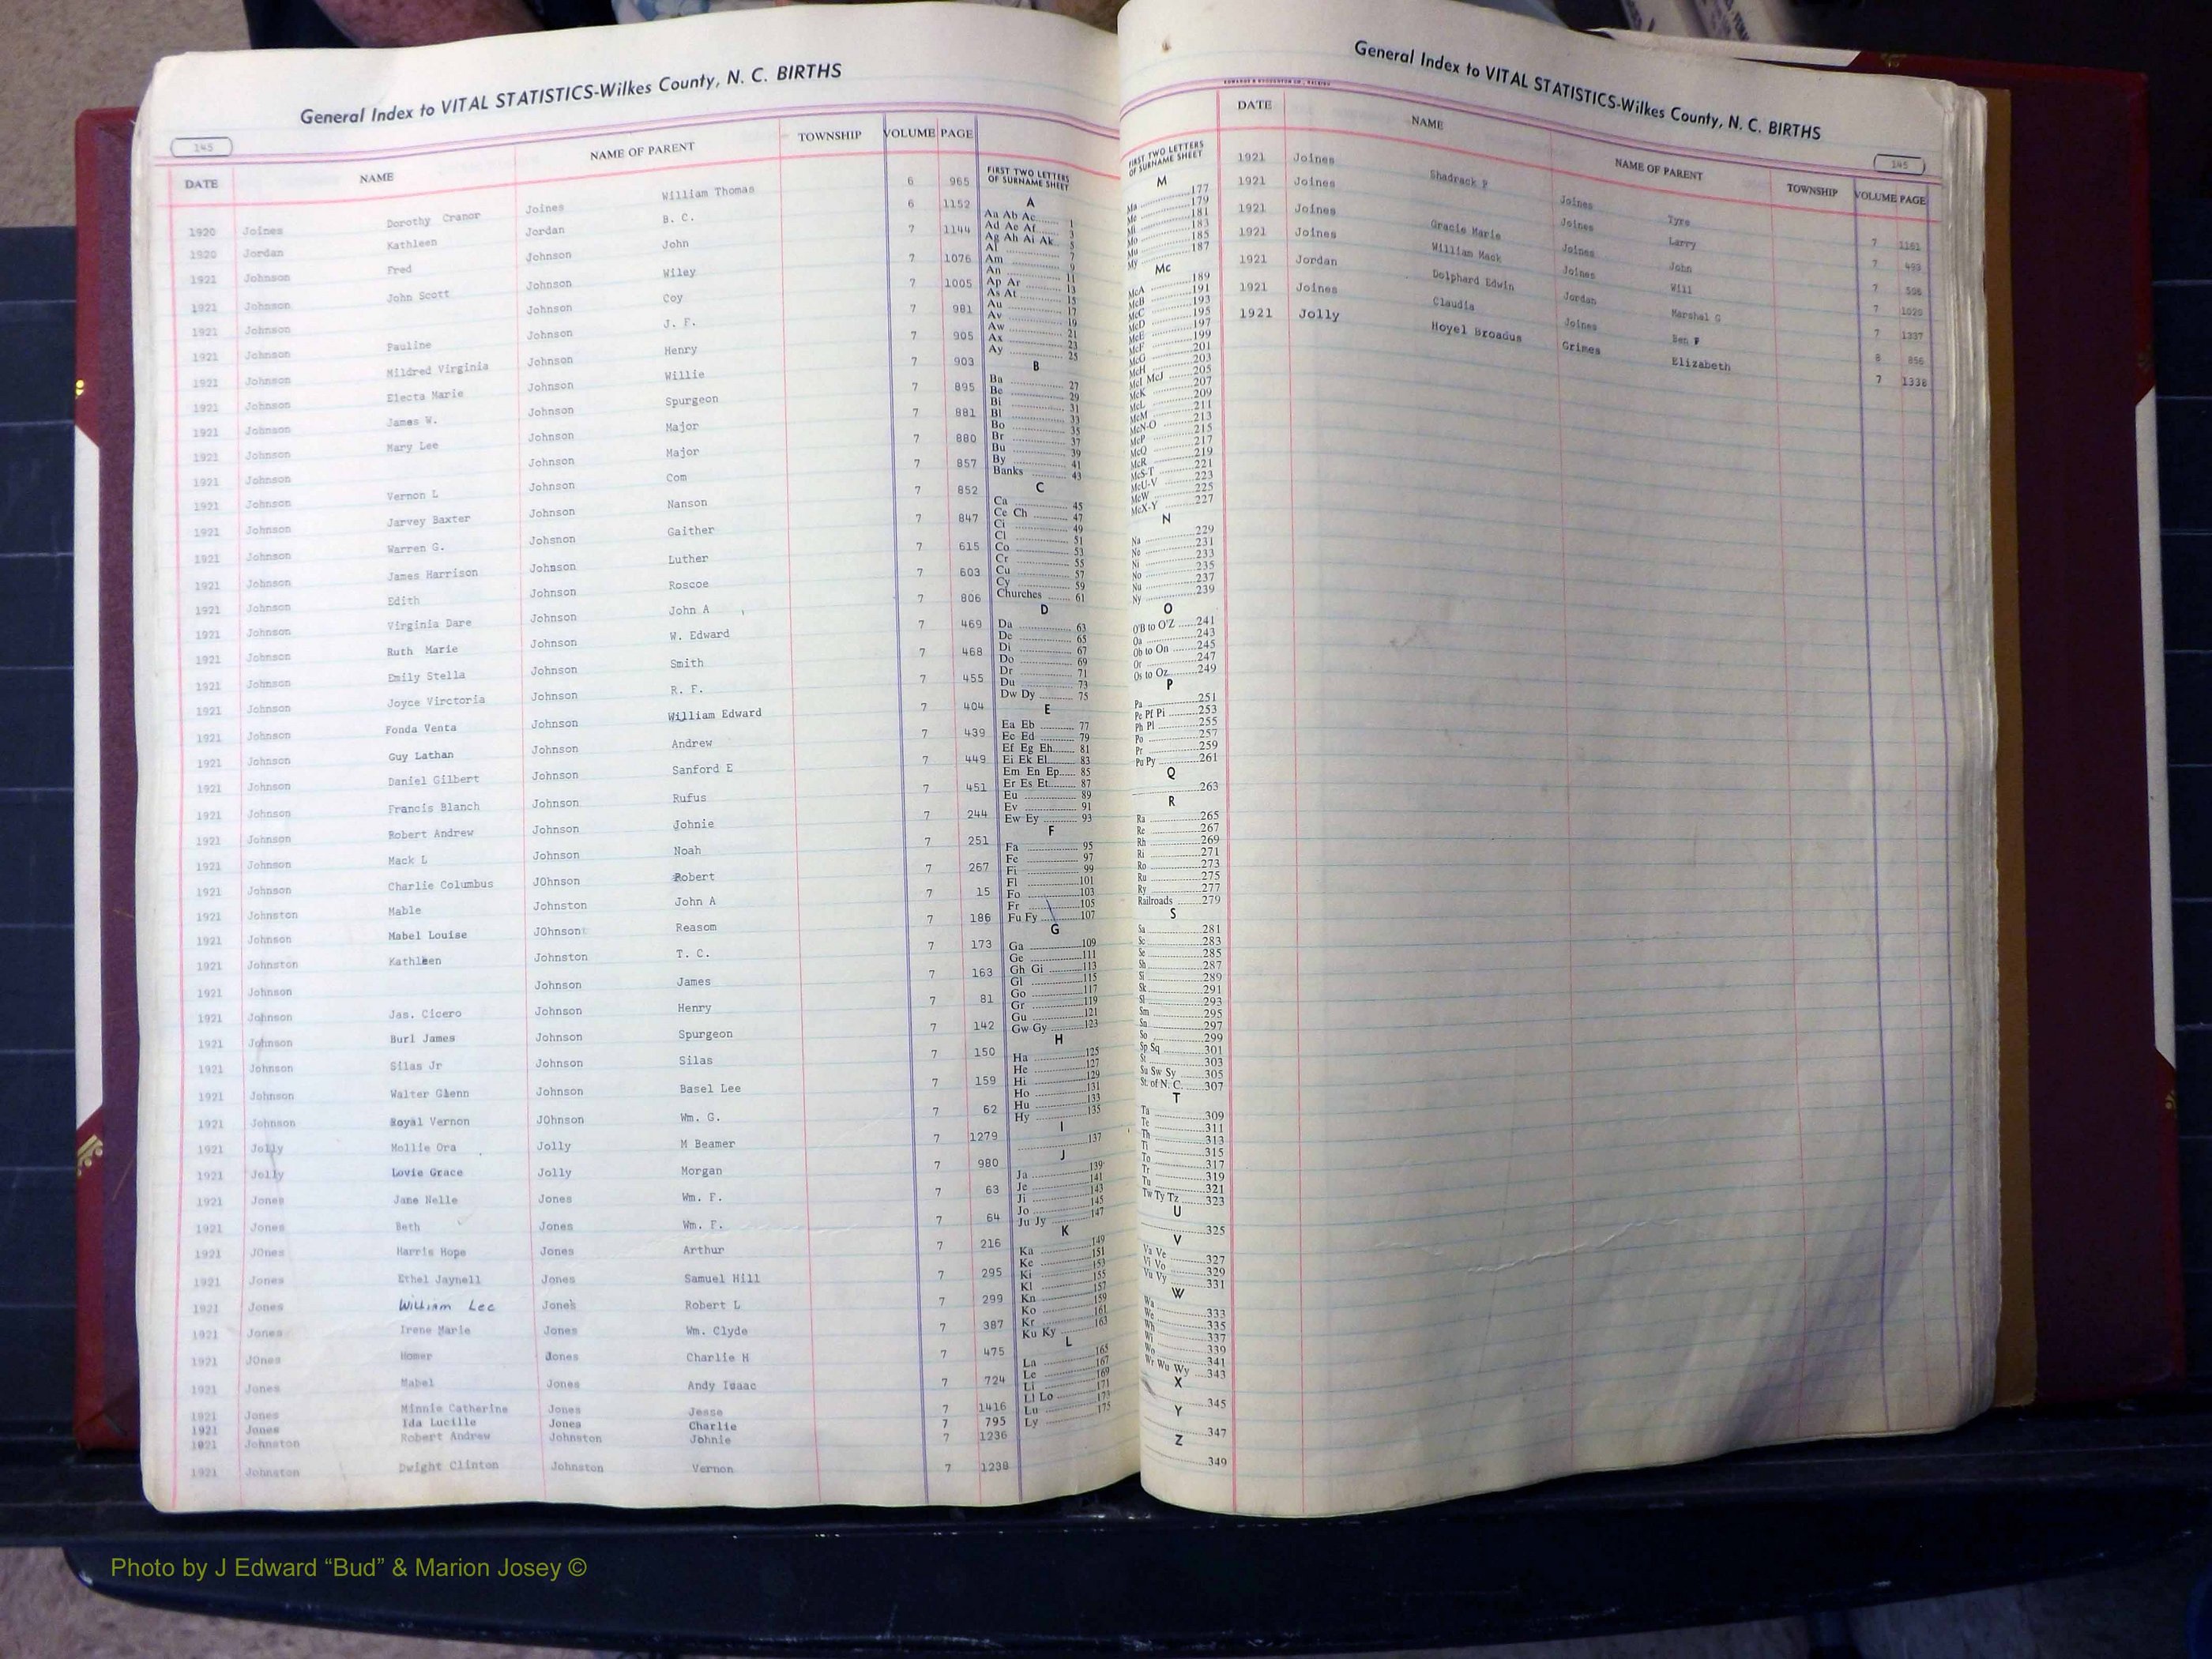 General Index to VITAL STATISTICS-Wilkes County, N. C. BIRTHS
145
DATE NAME NAME OF PARENT TOWNSHIP VOLUME PAGE
1920 Joines Dorothy Cranor Joines William Thomas 6 965
1920 Jordan Kathleen Jordan B. C. 6 1152
1921 Johnson Fred Johnson John 7 1144
1921 Johnson John Scott Johnson Wiley 7 1076
1921 Johnson Johnson Coy 7 1005
1921 Johnson Pauline Johnson J. F. 7 981
1921 Johnson Mildred Virginia Johnson Henry 7 905
1921 Johnson Electa Marie Johnson Willie 7 903
1921 Johnson James W. Johnson Spurgeon 7 895
1921 Johnson Mary Lee Johnson Major 7 881
1921 Johnson Johnson Major 7 880
1921 Johnson Vernon L Johnson Com 7 857
1921 Johnson Jarvey Baxter Johnson Nanson 7 852
1921 Johnson Warren G. Johsnon Gaither 7 847
1921 Johnson James Harrison Johnson Luther 7 615
1921 Johnson Edith Johnson Roscoe 7 603
1921 Johnson Virginia Dare Johnson John A 7 806
1921 Johnson Ruth Marie Johnson W. Edward 7 469
1921 Johnson Emily Stella Johnson Smith 7 468
1921 Johnson Joyce Virctoria Johnson R. F. 7 455
1921 Johnson Fonda Venta Johnson William Edward 7 404
1921 Johnson Guy Lathan Johnson Andrew 7 439
1921 Johnson Daniel Gilbert Johnson Sanford E 7 449
1921 Johnson Francis Blanch Johnson Rufus 7 451
1921 Johnson Robert Andrew Johnson Johnie 7 244
1921 Johnson Mack L Johnson Noah 7 251
1921 Johnson Charlie Columbus JOhnson Robert 7 267
1921 Johnston Mable Johnston John A 7 15
1921 Johnson Mabel Louise JOhnson Reasom 7 186
1921 Johnston Kathleen Johnston T. C. 7 173
1921 Johnson Johnson James 7 163
1921 Johnson Jas. Cicero Johnson Henry 7 81
1921 Johnson Burl James Johnson Spurgeon 7 142
1921 Johnson Silas Jr Johnson Silas 7 150
1921 Johnson Walter Glenn Johnson Basel Lee 7 159
1921 Johnson Royal Vernon JOhnson Wm. G. 7 62
1921 Jolly Mollie Ora Jolly M Beamer 7 1279
1921 Jolly Lovie Grace Jolly Morgan 7 980
1921 Jones Jane Nelle Jones Wm. F. 7 63
1921 Jones Beth Jones Wm. F. 7 64
1921 JOnes Harris Hope Jones Arthur 7 216
1921 Jones Ethel Jaynell Jones Samuel Hill 7 295
1921 Jones William Lee Jones Robert L 7 299
1921 Jones Irene Marie Jones Wm. Clyde 7 387
1921 JOnes Homer Jones Charlie H 7 475
1921 Jones Mabel Jones Andy Isaac 7 724
1921 Jones Minnie Catherine Jones Jesse 7 1416
1921 Jones Ida Lucille Jones Charlie 7 795
1921 Johnston Robert Andrew Johnston Johnie 7 1236
1921 Johnston Dwight Clinton Johnston Vernon 7 1238
FIRST TWO LETTERS
OF SURNAME SHEET
A
Aa Ab Ac 1
Ad Ae Af 3
Ag Ah Ai Ak 5
Al 7
Am 9
An 11
Ap Ar 13
As At 15
Au 17
Av 19
Aw 21
Ax 23
Ay 25
B
Ba 27
Be 29
Bi 31
Bl 33
Bo 35
Br 37
Bu 39
By 41
Banks 43
C
Ca 45
Ce Ch 47
Ci 49
Cl 51
Co 53
Cr 55
Cu 57
Cy 59
Churches 61
D
Da 63
De 65
Di 67
Do 69
Dr 71
Du 73
Dw Dy 75
E
Ea Eb 77
Ec Ed 79
Ef Eg Eh 81
Ei Ek El 83
Em En Ep 85
Er Es Et 87
Eu 89
Ev 91
Ew Ey 93
F
Fa 95
Fe 97
Fi 99
Fl 101
Fo 103
Fr 105
Fu Fy 107
G
Ga 109
Ge 111
Gh Gi 113
Gl 115
Go 117
Gr 119
Gu 121
Gw Gy 123
H
Ha 125
He 127
Hi 129
Ho 131
Hu 133
Hy 135
I
137
J
Ja 139
Je 141
Ji 143
Jo 145
Ju Jy 147
K
Ka 149
Ke 151
Ki 153
Kl 155
Kn 157
Ko 159
Kr 161
Ku Ky 163
L
La 165
Le 167
Li 169
Ll Lo 171
Lu 173
Ly 175
General Index to VITAL STATISTICS-Wilkes County, N. C. BIRTHS
145
FIRST TWO LETTERS
OF SURNAME SHEET
M
Ma 177
Me 179
Mi 181
Mo 183
Mu 185
My 187
Mc
McA 189
McB 191
McC 193
McD 195
McE 197
McF 199
McG 201
McH 203
McI McJ 205
McK 207
McL 209
McM 211
McN-O 213
McP 215
McQ 217
McR 219
McS-T 221
McU-V 223
McW 225
McX-Y 227
N
Na 229
Ne 231
Ni 233
No 235
Nu 237
Ny 239
O
O'B to O'Z 241
Oa 243
Ob to On 245
Or 247
Os to Oz 249
P
Pa 251
Pe Pf Pi 253
Ph Pl 255
Po 257
Pr 259
Pu Py 261
Q
263
R
Ra 265
Re 267
Rh 269
Ri 271
Ro 273
Ru 275
Ry 277
Railroads 279
S
Sa 281
Sc 283
Se 285
Sh 287
Si 289
Sk 291
Sl 293
Sm 295
Sn 297
So 299
Sp Sq 301
St 303
Su Sw Sy 305
St. of N. C. 307
T
Ta 309
Te 311
Th 313
Ti 315
To 317
Tr 319
Tu 321
Tw Ty Tz 323
U
325
V
Va Ve 327
Vi Vo 329
Vu Vy 331
W
Wa 333
We 335
Wh 337
Wi 339
Wo 341
Wr Wu Wy 343
X
345
Y
347
Z
349
DATE NAME NAME OF PARENT TOWNSHIP VOLUME PAGE
1921 Joines Shadrack Joines Tyre 7 1161
1921 Joines Joines Larry 7 493
1921 Joines Gracie Marie Joines John 7 556
1921 Joines William Mack Joines Will 7 1029
1921 Jordan Dolphard Edwin Jordan Marshal G 7 1337
1921 Joines Claudia Joines Ben F 8 856
1921 Jolly Hoyel Broadus Grimes Elizabeth 7 1338
Photo by J Edward “Bud” & Marion Josey ©